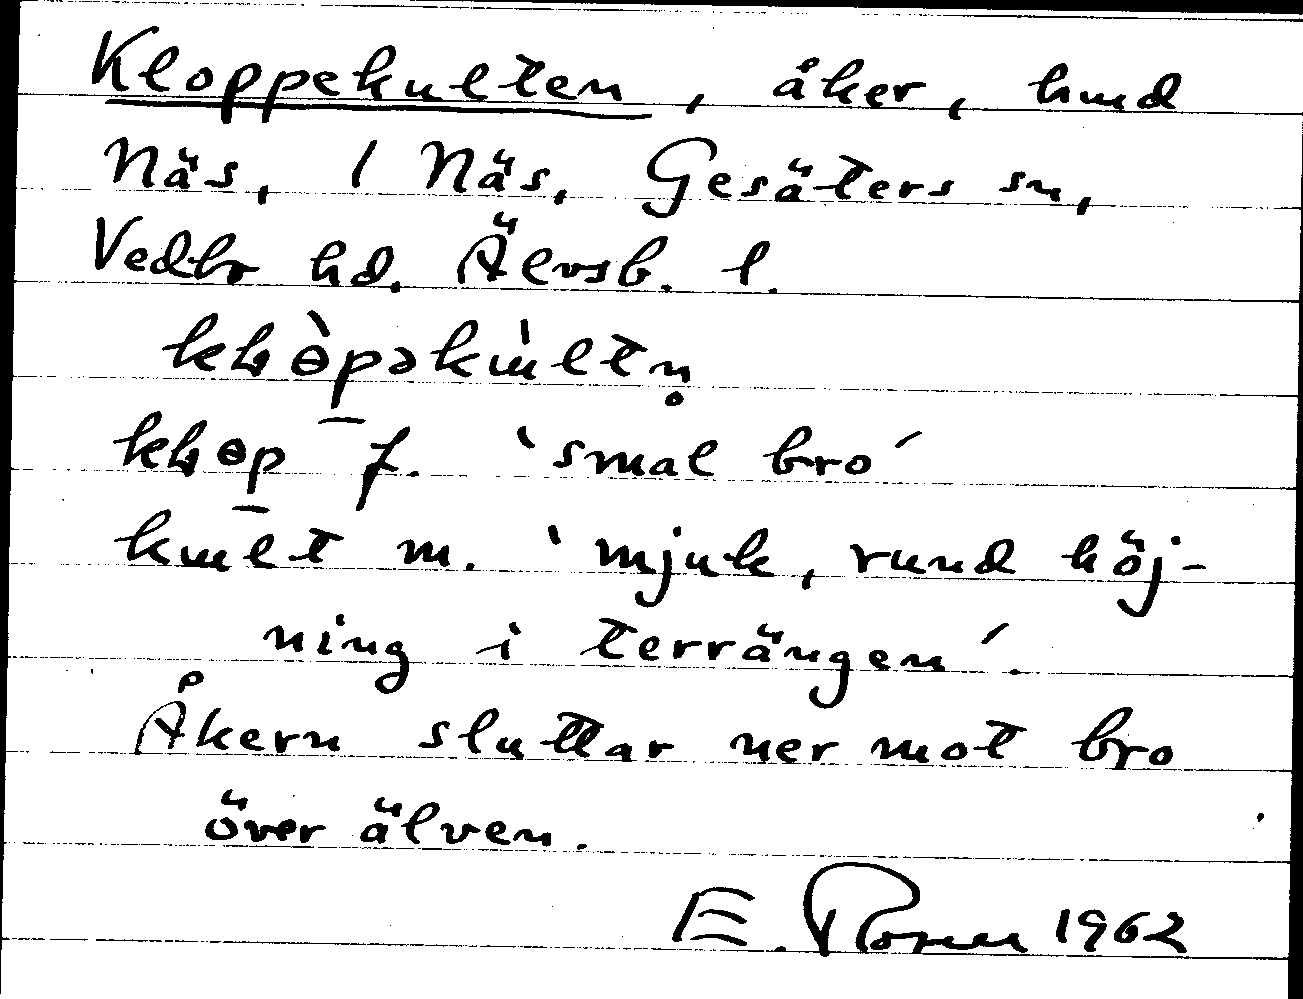 Kloppekulten, åker, hmd
Näs, 1 Näs, Gesäters sn,
Vedbo hd. Älvsb. l.
kɭɵ̀pəkɯ̀ltn̥
kɭɵp f. `smal bro´
kɯlt m. `mjuk, rund höj-
ning i terrängen´.
Åkern sluttar ner mot bro
över älven.
E. 1962